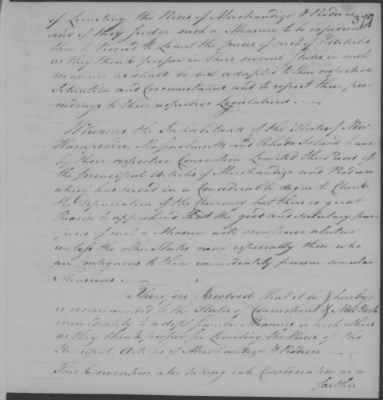 372
of Limiting the Prices of Merchandize & Produce
and if they judge such a Measure to be expedient
then to Proceed to Limit the prices of such Articles
as they think proper in their several States in such
manner as shall be best adapted to their respective
Situation and Circumstances and to report their pro=
ceedings to their respective Legislatures.
Whereas the Inhabitants of the States of New
Hampshire, Massachusetts and Rhode Island have
by their respective Convention Limited the Prices of
the principal Articles of Merchandize and Produce
which has served in a Considerable degree to Check
the Depreciation of the Currency but there is great
Reason to apprehend that the good and salutary pur=
poses of such a Measure will some prove abortive
unless the other States more especially them who
are contiguous to them immediately pursue similar
Measures
Therefore Resolved that it be & hereby
is recommended to the States of Connecticut & New York
immediately to adopt similar Measures or such others
as they think proper for Limiting the Prices of the
Principal Articles of Merchandize & Produce
This Convention also taking into Consideration as a
farther